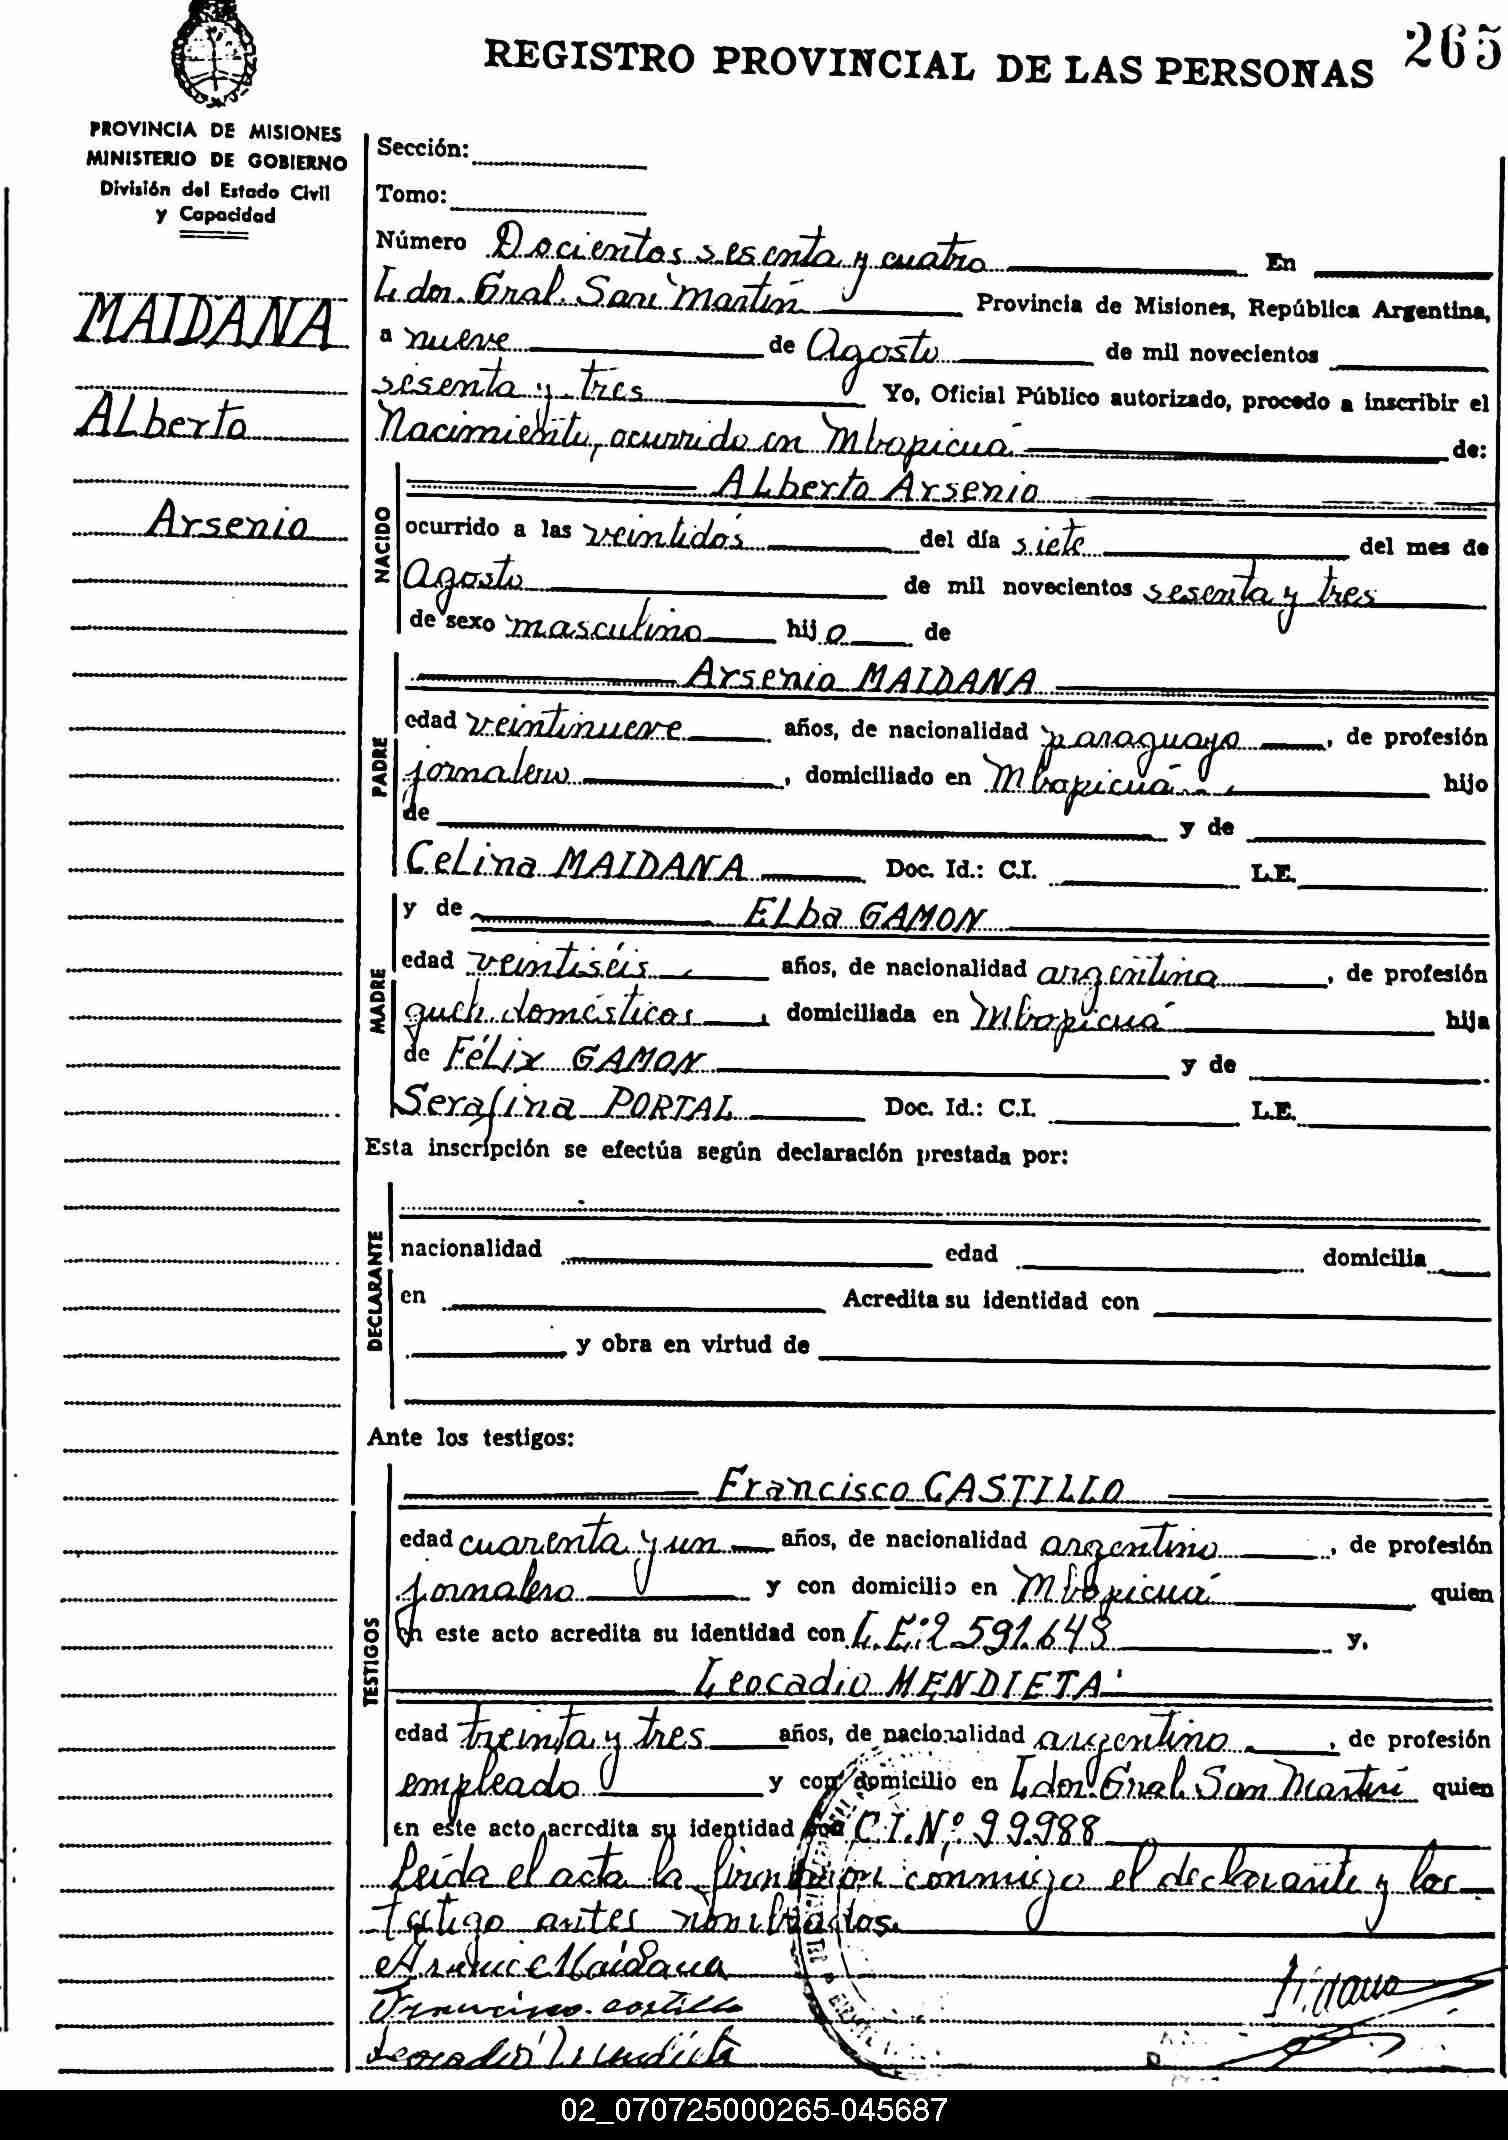 265
REGISTRO PROVINCIAL DE LAS PERSONAS
PROVINCIA DE MISIONES
MINISTERIO DE GOBIERNO
División del Estado Civil
y Capacidad
MAIDANA
Alberto
Arsenio
Sección:
Tomo:
Número Docientos sesenta y cuatro En
Ldor. Gral. San Martín Provincia de Misiones, República Argentina,
a nueve de Agosto de mil novecientos
sesenta y tres Yo, Oficial Público autorizado, procedo a inscribir el
Nacimiento, ocurrido en Mbopicuá de:
NACIDO
Alberto Arsenio
ocurrido a las veintidós del día siete del mes de
Agosto de mil novecientos sesenta y tres
de sexo masculino hijo de
PADRE
Arsenio MAIDANA
edad veintinueve años, de nacionalidad paraguayo, de profesión
jornalero, domiciliado en Mbopicuá hijo
de y de
Celina MAIDANA Doc. Id.: C.I. L.E.
MADRE
y de Elba GAMON
edad veintiséis años, de nacionalidad argentina, de profesión
queh. domésticos, domiciliada en Mbopicuá hija
de Félix GAMON y de
Serafina PORTAL Doc. Id.: C.I. L.E.
Esta inscripción se efectúa según declaración prestada por:
DECLARANTE
nacionalidad edad domicilia
en Acredita su identidad con
y obra en virtud de
Ante los testigos:
TESTIGOS
Francisco CASTILLO
edad cuarenta y un años, de nacionalidad argentino, de profesión
jornalero y con domicilio en Mbopicuá quien
en este acto acredita su identidad con L.E: 2.591.648 y,
Leocadio MENDIETA
edad treinta y tres años, de nacionalidad argentino, de profesión
empleado y con domicilio en Ldor. Gral. San Martín quien
en este acto acredita su identidad con C.I.Nº 99.988
Leída el acta la firman con conmigo el declarante y los
testigo antes nombrados.
Arsenio Maidana
Francisco castillo
Leocadio Mendieta
02_070725000265-045687